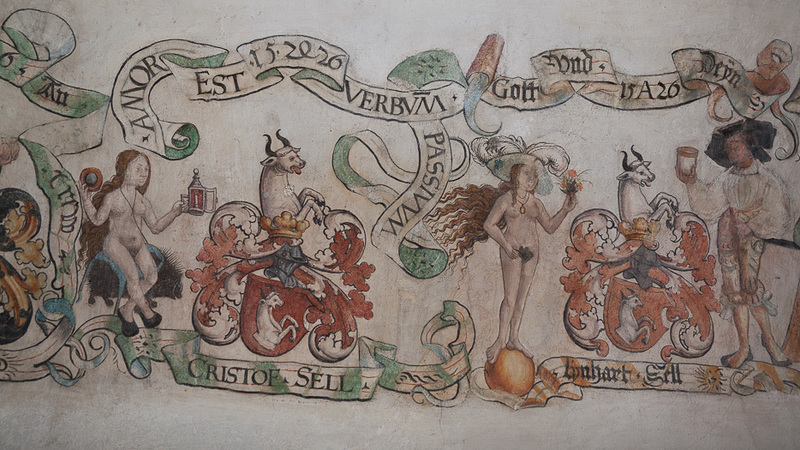 An
AMOR EST 15·20·26 VERBVM̄ PASSIVVM
Gott Vnd 15A26 Deÿn
CRISTOF · SELL
lynhart · Sell